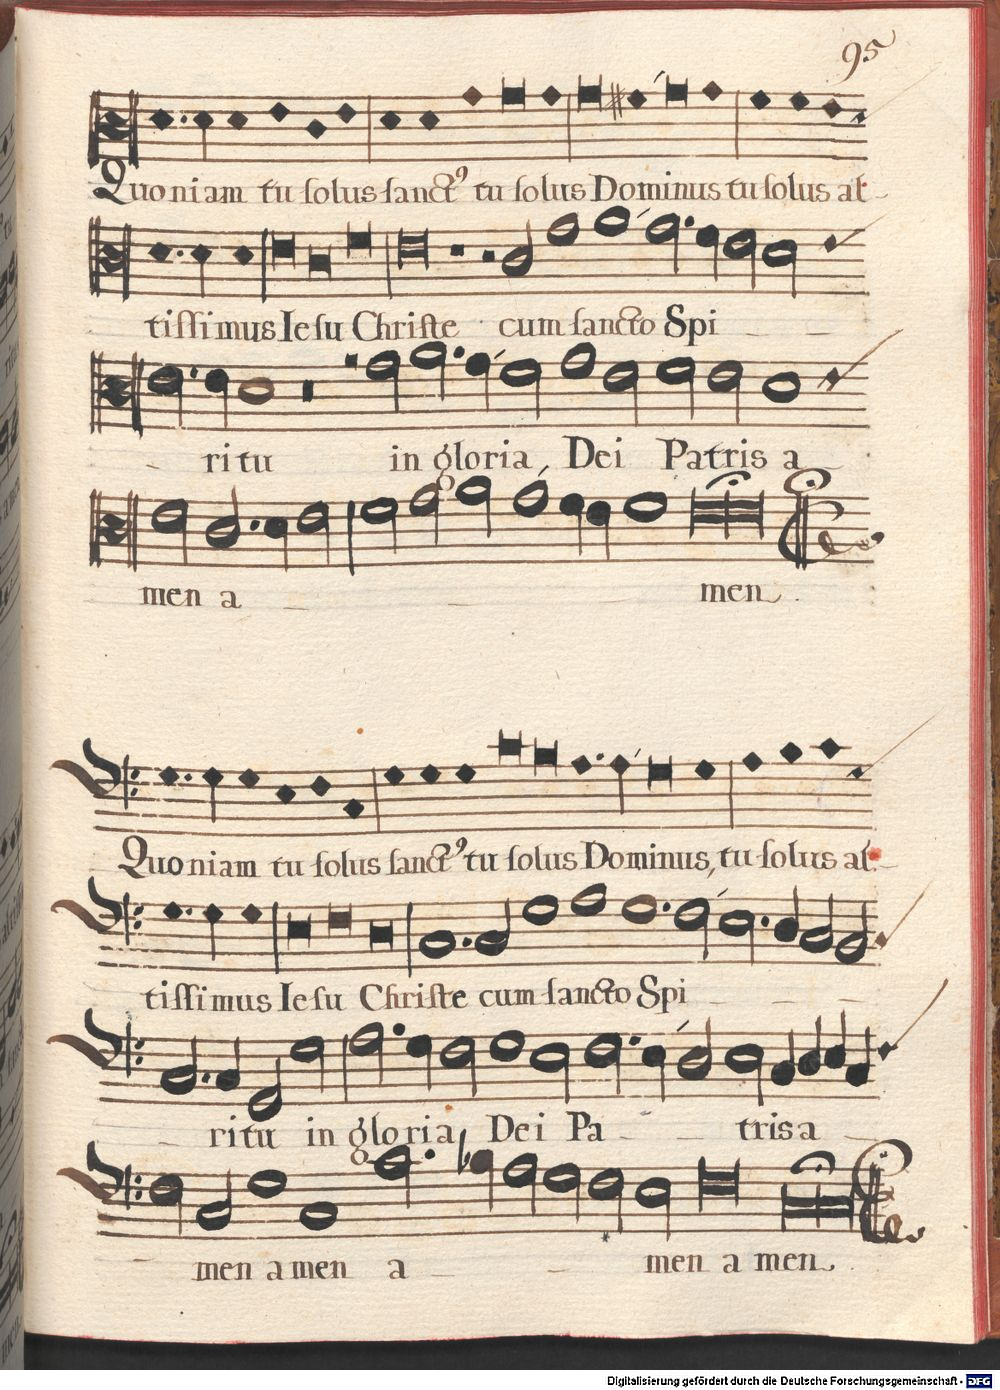 95
Quoniam tu solus sanct⁹ tu solus Dominus tu solus al-
tissimus Iesu Christe cum sancto Spi - -
- ritu in gloria Dei Patris a -
men a - - men.
Quoniam tu solus sanct⁹ tu solus Dominus, tu solus al-
tissimus Iesu Christe cum sancto Spi - - -
- ritu in gloria Dei Pa - - tris a -
- men a men a - - - men a men.
Digitalisierung gefördert durch die Deutsche Forschungsgemeinschaft - DFG